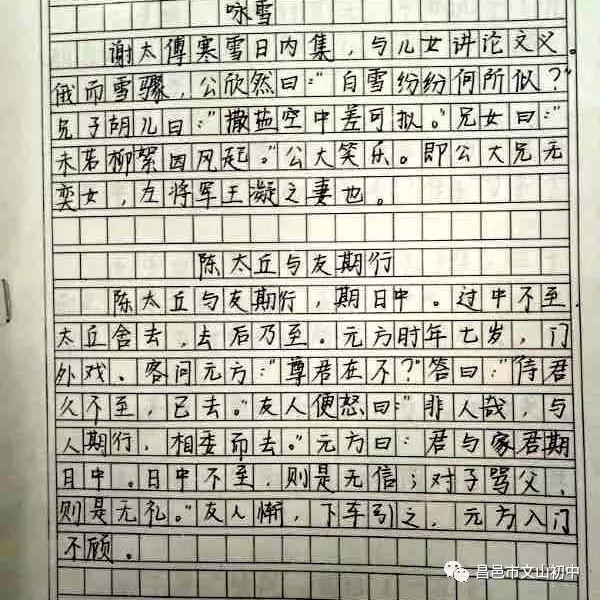 咏雪
谢太傅寒雪日内集，与儿女讲论文义。
俄而雪骤，公欣然曰："白雪纷纷何所似？"
兄子胡儿曰："撒盐空中差可拟。"兄女曰："
未若柳絮因风起。"公大笑乐。即公大兄无
奕女，左将军王凝之妻也。
陈太丘与友期行
陈太丘与友期行，期日中。过中不至，
太丘舍去，去后乃至。元方时年七岁，门
外戏。客问元方："尊君在不？"答曰："待君
久不至，已去。"友人便怒曰："非人哉，与
人期行，相委而去。"元方曰：君与家君期
日中。日中不至，则是无信；对子骂父，
则是无礼。"友人惭，下车引之，元方入门
不顾。
昌邑市文山初中